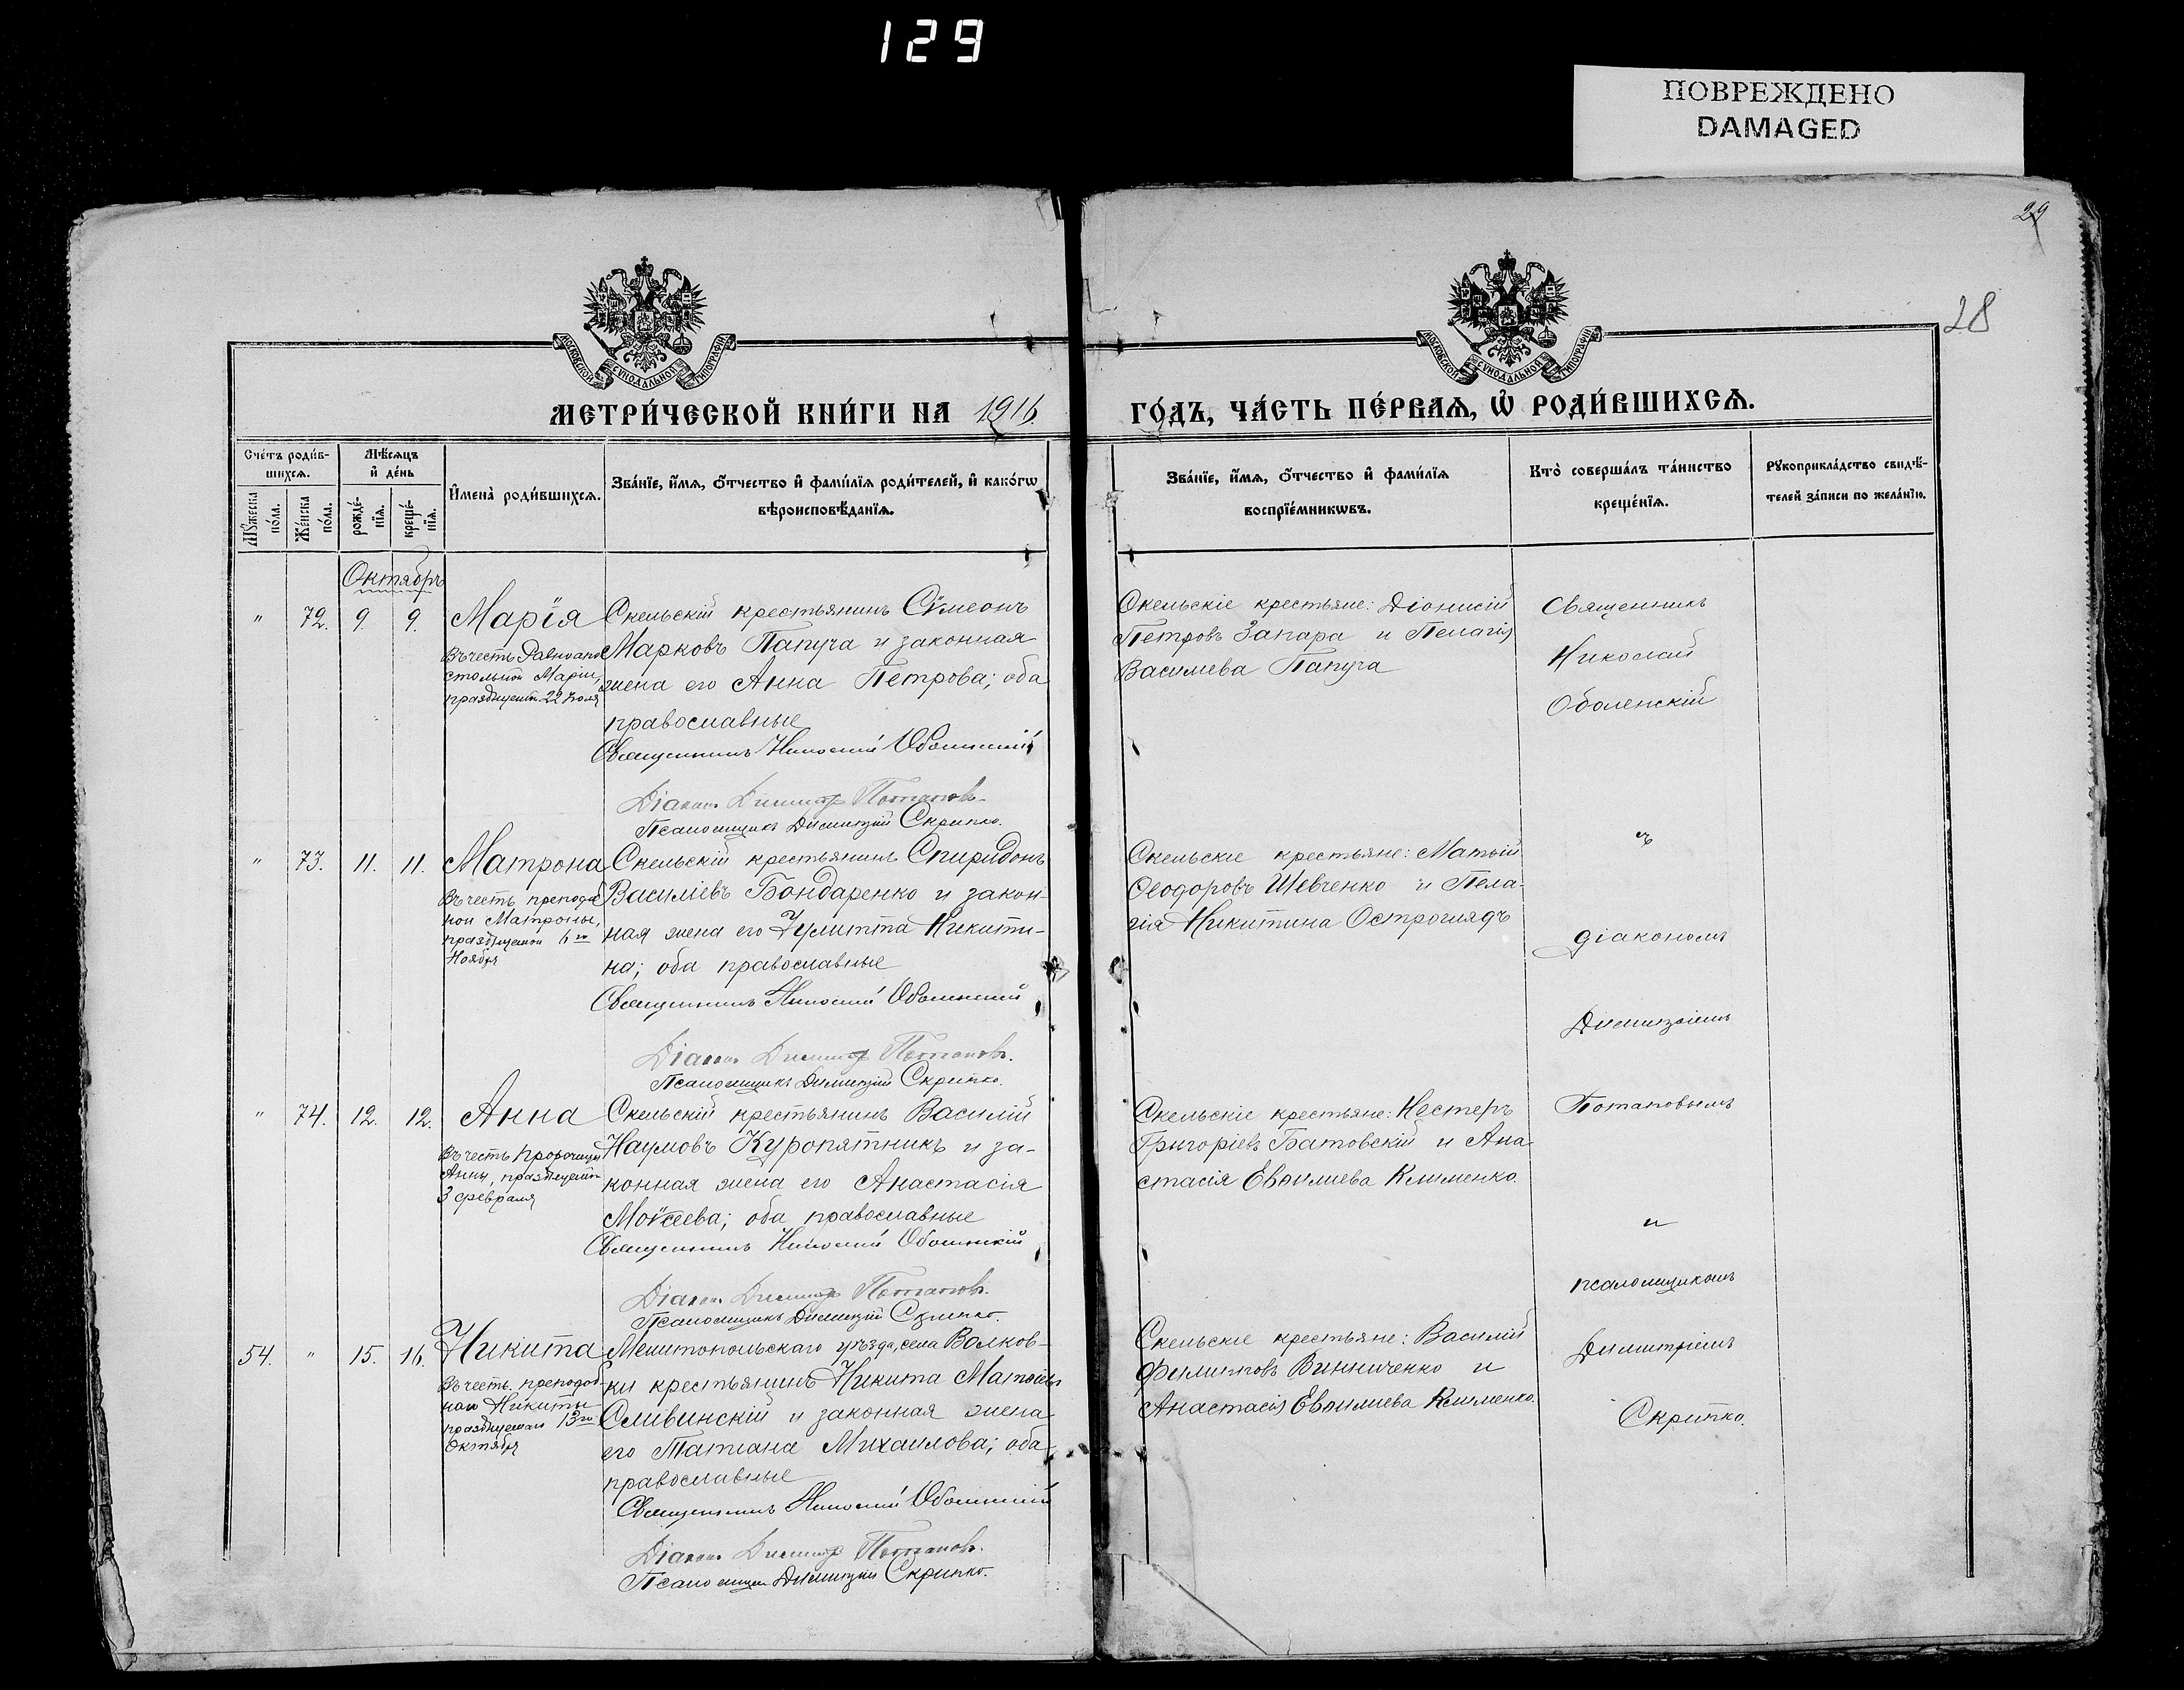 129
ПОВРЕЖДЕНО
DAMAGED
29
28
МОСКОВСКОЙ СѴНОДАЛЬНОЙ ТИПОГРАФІИ
МОСКОВСКОЙ СѴНОДАЛЬНОЙ ТИПОГРАФІИ
МЕТРИ́ЧЕСКОЙ КНИ́ГИ НА 1916.
ГО́ДЪ, ЧА́СТЬ ПЕ́РВАѦ, Ѡ҆ РОДИ́ВШИХСѦ.
Сче́тъ роди́в-
шихсѧ.
Мѣ́сѧцъ
и҆ де́нь
Мꙋ́жеска
по́ла.
Же́нска
по́ла.
рожде́-
нїѧ.
креще́-
нїѧ.
И҆мена̀ роди́вшихсѧ.
Зва́нїе, и҆́мѧ, ѻ҆́тчество и҆ фами́лїѧ роди́телей, и҆ како́гѡ
вѣроисповѣ́данїѧ.
Зва́нїе, и҆́мѧ, ѻ҆́тчество и҆ фами́лїѧ
воспрїе́мникѡвъ.
Кто̀ соверша́лъ та́инство
креще́нїѧ.
Рꙋкоприкла́дство свидѣ́-
телей за́писи по жела́нїю.
Октябрь
" 72. 9. 9. Марія
Въ честь Равноапо
стольной Маріи,
празднуемой 22 Іюля
Скельскій крестьянинъ Сѵмеонъ
Марковъ Папуча и законная
жена его Анна Петрова; оба
православные
Священникъ Николай Оболенскій
Діаконъ Димитр Потаповъ.
Псаломщикъ Димитрій Скрипко.
Скельскіе крестьяне: Діонисій
Петровъ Запара и Пелагія
Василиева Папуча
Священникъ
Николай
Оболенскій
" 73. 11. 11. Матрона
Въ честь преподоб
ной Матроны,
празднуемой 6го
Ноября
Скельскій крестьянинъ Спиридонъ
Василіевъ Бондаренко и закон-
ная жена его Іулитта Никити-
на; оба православные
Священникъ Николай Оболенскій
Діаконъ Димитр Потаповъ.
Псаломщикъ Димитрій Скрипко.
Скельскіе крестьяне: Матѳій
Ѳеодоровъ Шевченко и Пела-
гія Никитина Остроглядъ
съ
діакономъ
Димитріемъ
" 74. 12. 12. Анна
Въ честь Пророчицы
Анны, празднуемой
3 февраля
Скельскій крестьянинъ Василій
Наумовъ Куропятникъ и за-
конная жена его Анастасія
Моѵсеева; оба православные
Священникъ Николай Оболенскій
Діаконъ Димитр Потаповъ.
Псаломщикъ Димитрій Скрипко.
Скельскіе крестьяне: Нестеръ
Григоріевъ Батовскій и Ана
стасія Евѳимиева Клименко.
Потаповымъ
и
псаломщикомъ
54. " 15. 16. Никита
Въ честь преподоб-
наго Никиты
празднуемаго 13го
Октября
Мелитопольскаго уѣзда, села Волков-
ки крестьянинъ Никита Матѳіевъ
Сливинскій и законная жена
его Татіана Михаилова; оба
православные
Священникъ Николай Оболенскій
Діаконъ Димитр Потаповъ.
Псаломщикъ Димитрій Скрипко.
Скельскіе крестьяне: Василій
Филипповъ Винниченко и
Анастасія Евѳимиева Клименко.
Димитріемъ
Скрипко.